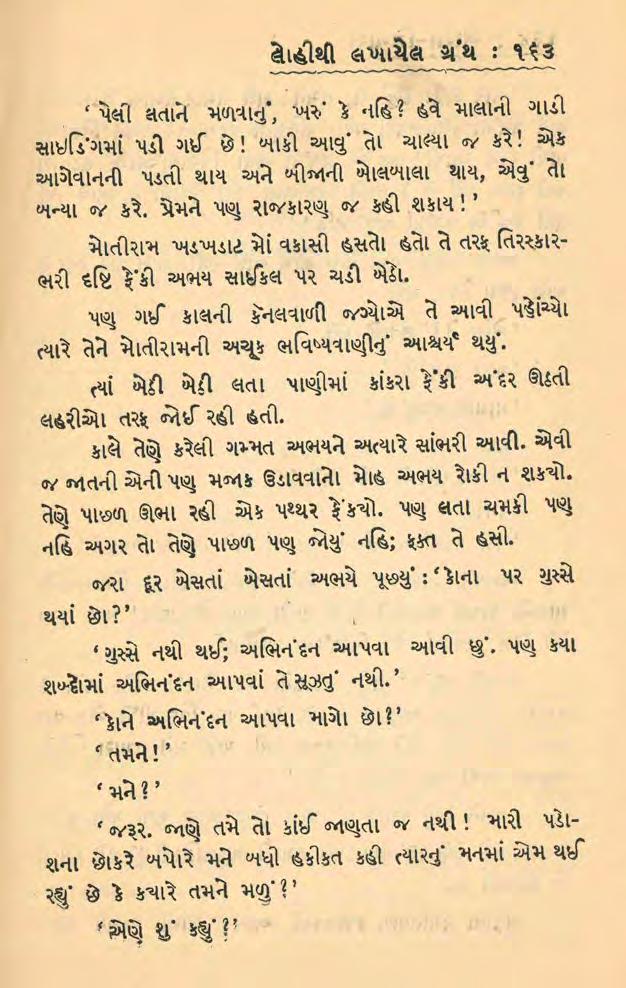 લોહીથી લખાયેલ ગ્રંથ : ૧૬૩
‘પેલી લતાને મળવાનું, ખરું કે નહિ? હવે માલાની ગાડી
સાઇડિંગમાં પડી ગઈ છે! બાકી આવું તો ચાલ્યા જ કરે! એક
આગેવાનની પડતી થાય અને બીજાની બોલબાલા થાય, એવું તો
બન્યા જ કરે. પ્રેમને પણ રાજકારણ જ કહી શકાય!’
મોતીરામ ખડખડાટ મોં વકાસી હસતો હતો તે તરફ તિરસ્કાર-
ભરી દૃષ્ટિ ફેંકી અભય સાઈકલ પર ચડી બેઠો.
પણ ગઈ કાલની કૅનલવાળી જગ્યોએ તે આવી પહોંચ્યો
ત્યારે તેને મોતીરામની અચૂક ભવિષ્યવાણીનું આશ્ચર્ય થયું.
ત્યાં બેઠી બેઠી લતા પાણીમાં કાંકરા ફેંકી અંદર ઊઠતી
લહરીઓ તરફ જોઈ રહી હતી.
કાલે તેણે કરેલી ગમ્મત અભયને અત્યારે સાંભરી આવી. એવી
જ જાતની એની પણ મજાક ઉડાવવાનો મોહ અભય રોકી ન શક્યો.
તેણે પાછળ ઊભા રહી એક પથ્થર ફેંક્યો. પણ લતા ચમકી પણ
નહિ અગર તો તેણે પાછળ પણ જોયું નહિ; ફક્ત તે હસી.
જરા દૂર બેસતાં બેસતાં અભયે પૂછ્યું : ‘કોના પર ગુસ્સે
થયાં છો?’
‘ગુસ્સે નથી થઈ; અભિનંદન આપવા આવી છું. પણ કયા
શબ્દોમાં અભિનંદન આપવાં તે સૂઝતું નથી.’
‘કોને અભિનંદન આપવા માગો છો?’
‘તમને!’
‘મને?’
‘જરૂર. જાણે તમે તો કાંઈ જાણતા જ નથી! મારી પડો-
શના છોકરે બપોરે મને બધી હકીકત કહી ત્યારનું મનમાં એમ થઈ
રહ્યું છે કે ક્યારે તમને મળું?’
‘એણે શું કહ્યું?’